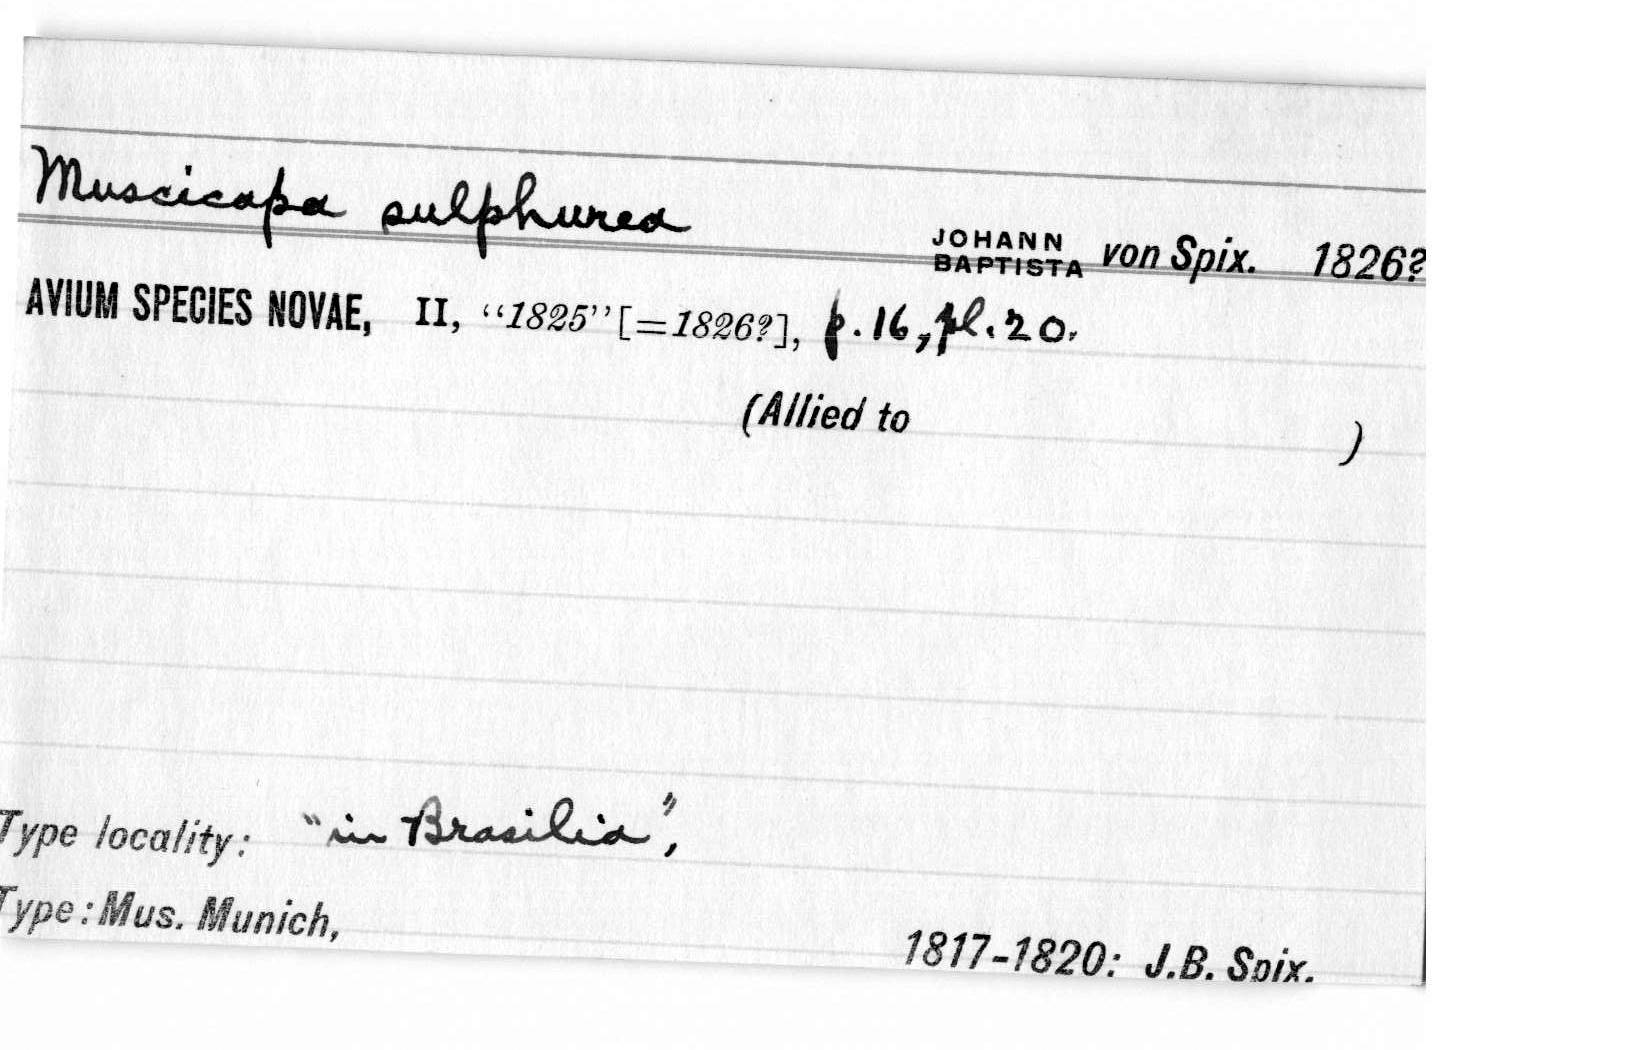 Muscicapa sulphurea JOHANN BAPTISTA von Spix. 1826?
AVIUM SPECIES NOVAE, II, “1825” [=1826?], p. 16, pl. 20.
(Allied to )
Type locality: "in Brasilia",
Type: Mus. Munich,
1817-1820: J.B. Spix.